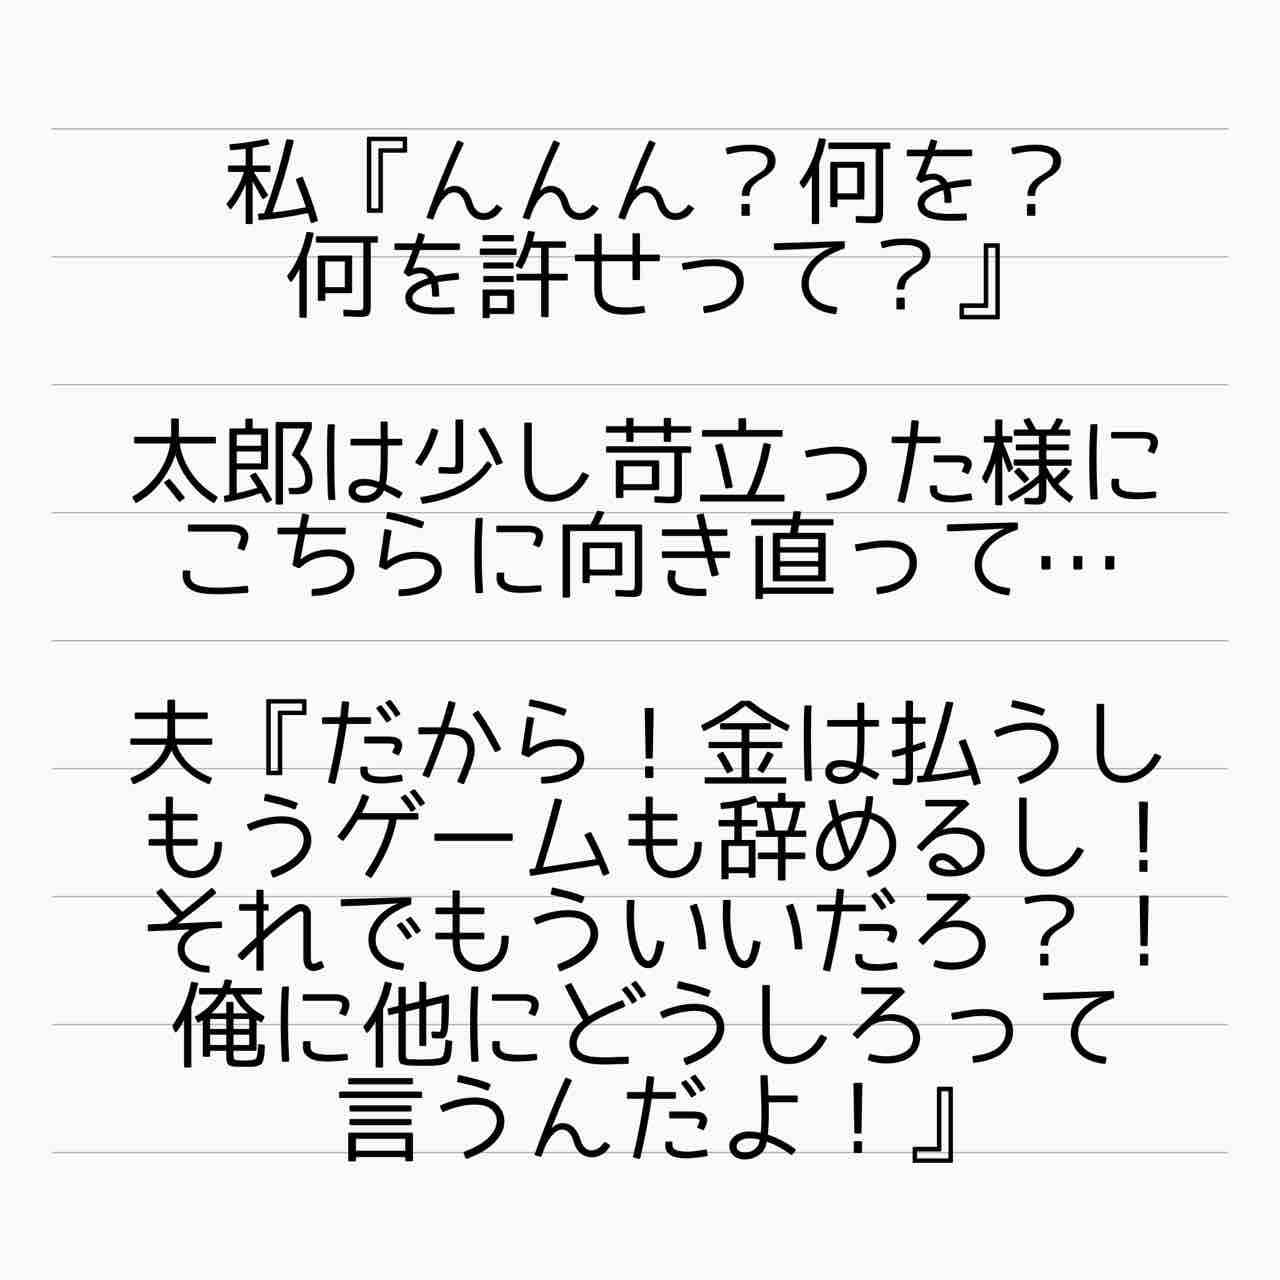 私『んんん？何を？
何を許せって？』
太郎は少し苛立った様に
こちらに向き直って…
夫『だから！金は払うし
もうゲームも辞めるし！
それでもういいだろ？！
俺に他にどうしろって
言うんだよ！』